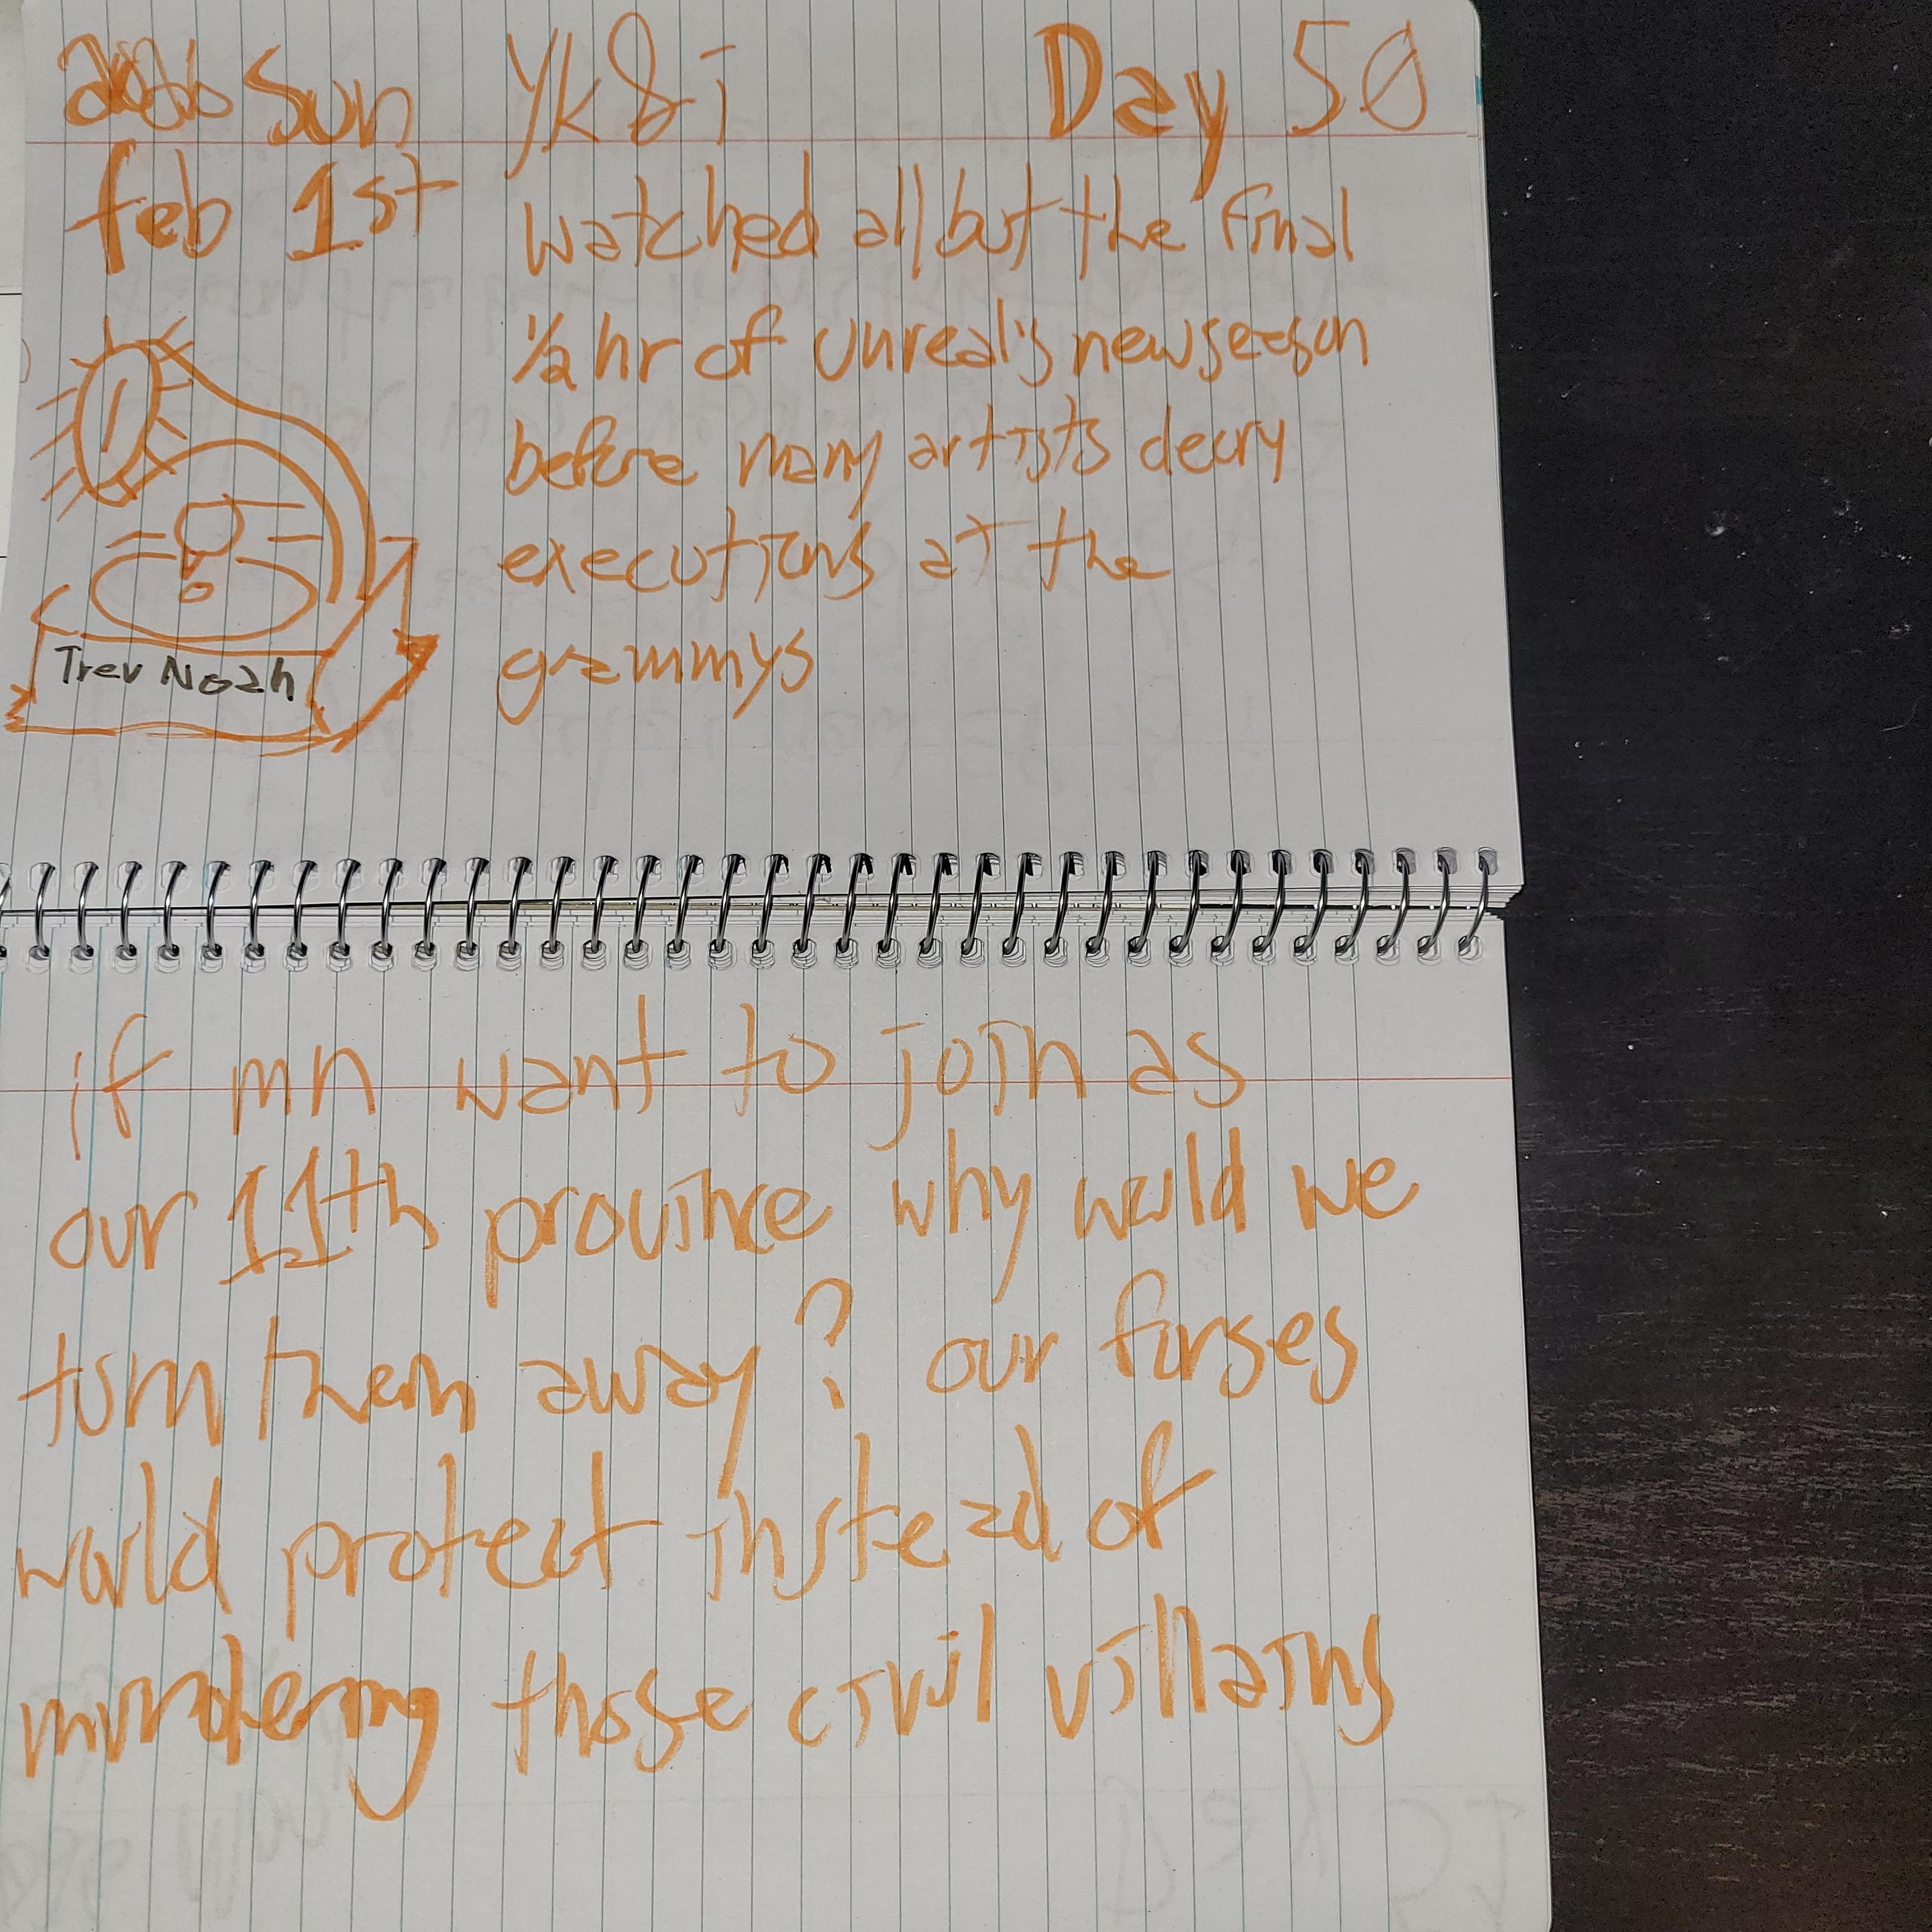 2026 Sun yk & i Day 50
feb 1st watched all but the final
1/2 hr of unreal's new season
before many artists decry
executions at the
grammys
Trev Noah
if mn want to join as
our 11th province why would we
turn them away? our forses
would protect instead of
murdering those civil villains